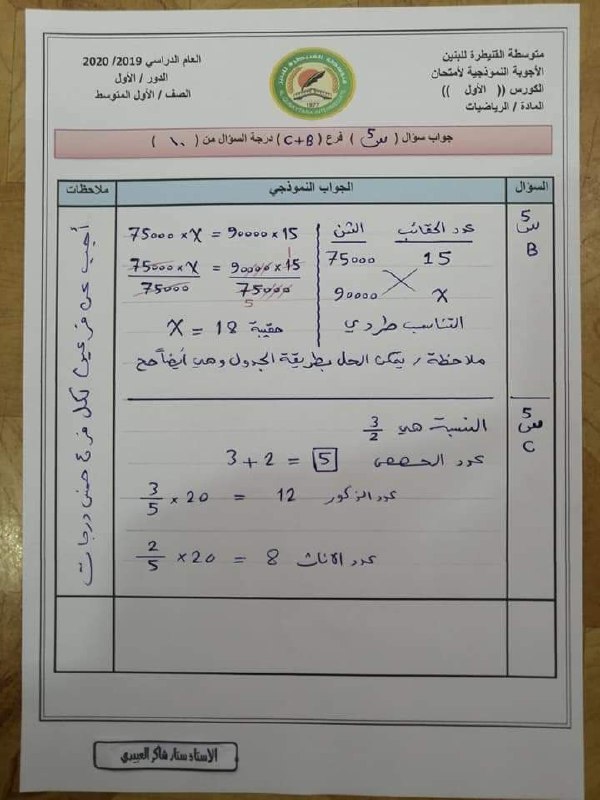 متوسطة القنيطرة للبنين
الأجوبة النموذجية لأمتحان
الكورس (( الأول ))
المادة / الرياضيات
العام الدراسي 2019/ 2020
الدور / الأول
الصف / الأول المتوسط
1977
جواب سؤال ( س5 ) فرع ( C+B ) درجة السؤال من ( ١٠ )
السؤال الجواب النموذجي ملاحظات
س5
B
عدد الحقائب الثمن
15 75000
x 90000
التناسب طردي
75000 × x = 90000 × 15
75000 × x / 75000 = 90000 × 15 / 75000
1
5
x = 18 حقيبة
ملاحظة / يمكن الحل بطريقة الجدول وهي أيضاً صح
س5
C
النسبة هي 3/2
عدد الحصص 3 + 2 = 5
عدد الذكور 3/5 × 20 = 12
عدد الاناث 2/5 × 20 = 8
أجب عن فرعين لكل فرع خمس درجات
الاستاذ ستار شاكر العبيدي